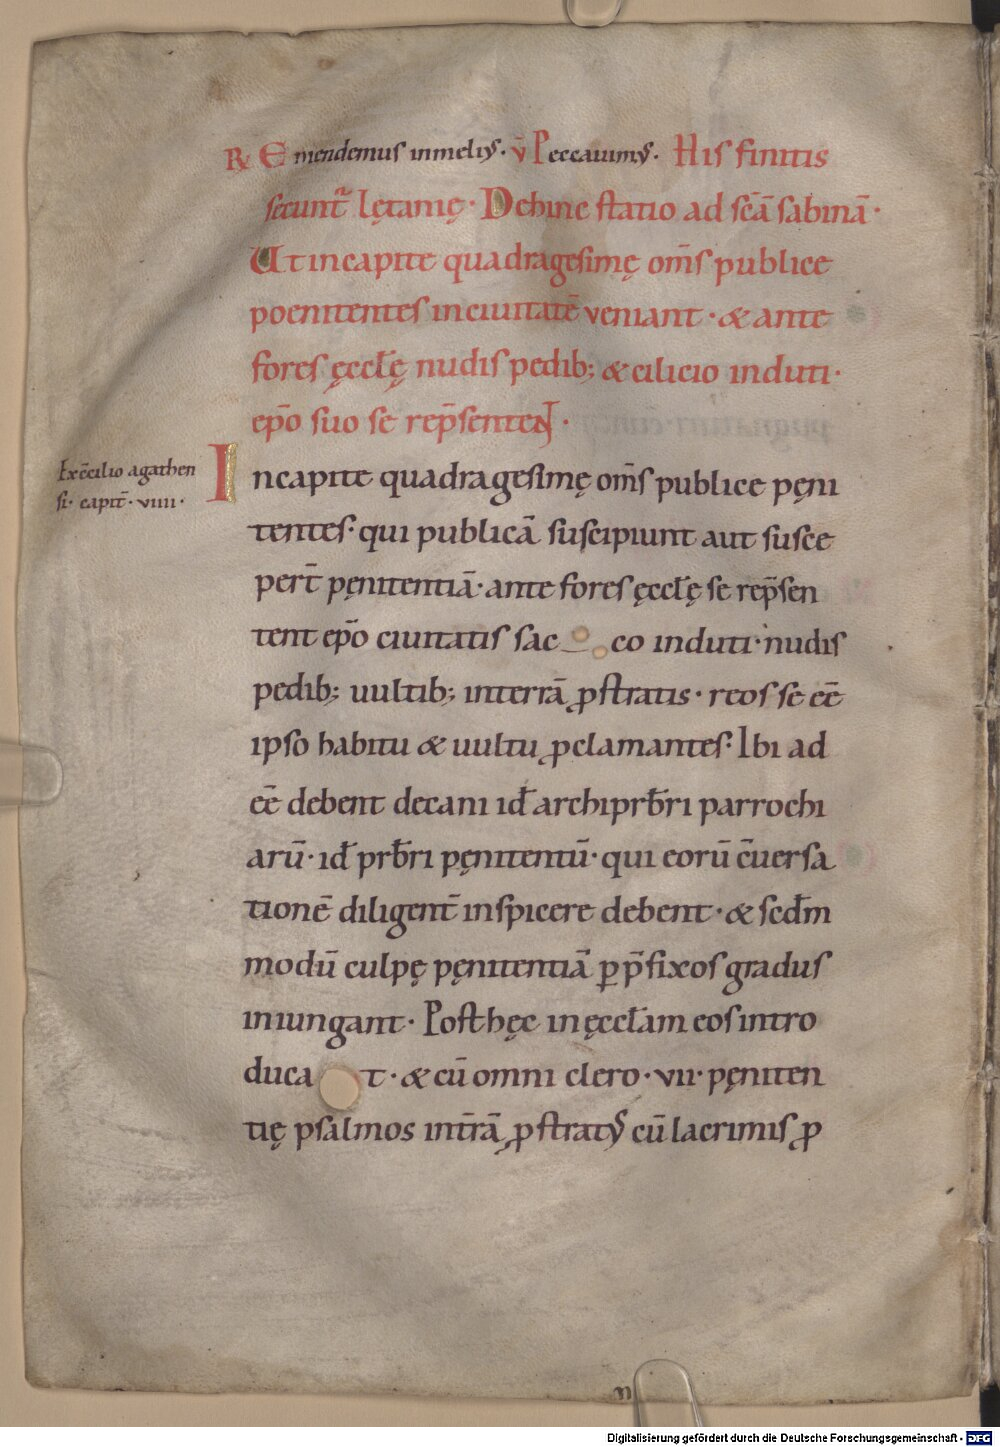 R͞ Emendemus inmeliꝰ· v̄ Peccauimꝰ. His finitis
secunt᷑ lętanię· Dehinc statio ad sc̄ā sabinā·
Ut incapite quadragesimę om̄s publice
poenitentes in ciuitatē veniant· & ante
fores ęccłę nudis pedib; & cilicio induti·
ep̄o suo se rep̄sentent·
Ex c̄cilio agathen
si· capit̄· viiii·
In capite quadragesimę om̄s publice pęni
tentes· qui publicā suscipiunt aut susce
pert̄ pęnitentiā· ante fores ęccłę se rep̄sen
tent ep̄o ciuitatis sac co induti· nudis
pedib; uultib; interrā ꝓstratis· reos se eē
ipso habitu & uultu ꝓclamantes· Ibi ad
eē debent decani id̄ archiprb̄ri parrochi
arū· id̄ prb̄ri pęnitentū· qui eorū c̄uersa
tionē diligent̄ inspicere debent· & secd̄m
modū culpę pęnitentiā ꝑ p̄fixos gradus
iniungant· Post hęc in ęccłam eos intro
duca t· & cū omni clero· vii· pęniten
tię psalmos int̄rā ꝓstratꝰ cū lacrimis ꝓ
Digitalisierung gefördert durch die Deutsche Forschungsgemeinschaft - DFG